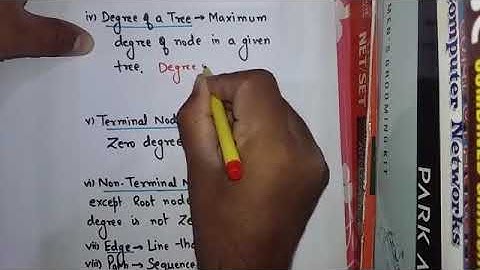 iv) Degree of a Tree → Maximum
degree of node in a given
tree. Degree
v) Terminal Nod
Zero degree
vi) Non-Terminal N
except Root node
degree is not Ze
vii) Edge → Line tha
viii) Path → Sequence
NET SET
MEN'S GROOMING KIT
PARK A
Computer Networks